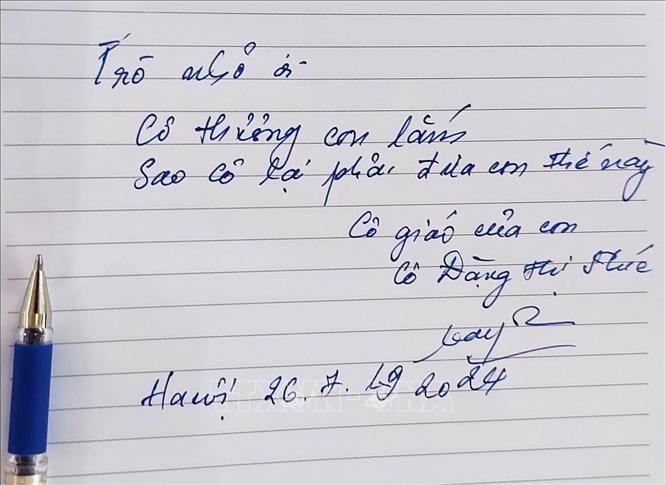 Trò nhỏ ơi
Cô thương con lắm
Sao cô lại phải đưa con thế này
Cô giáo của con
Cô Đặng Thị Phúc
Hanội 26.7.19 2024
TTXVN-VNA